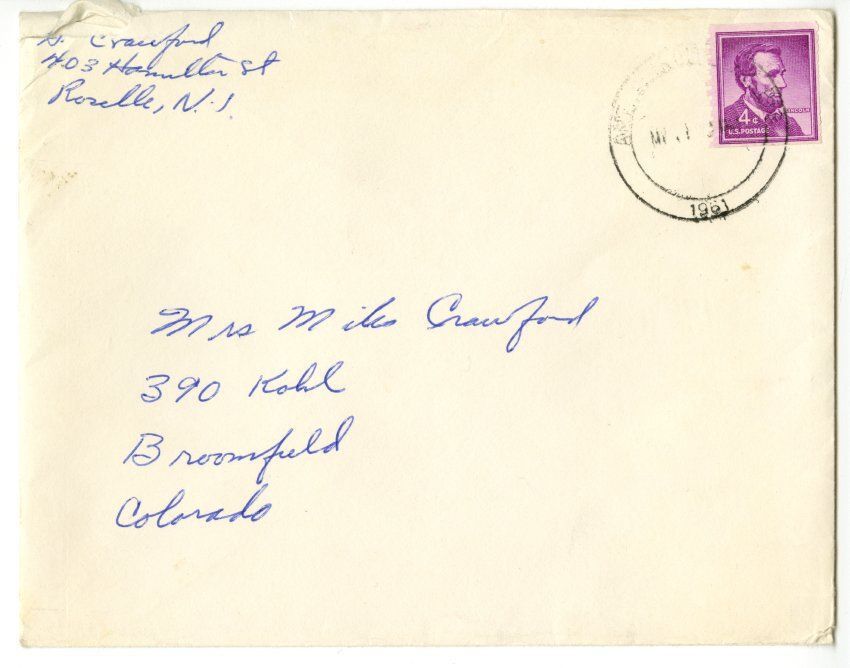 Crawford
403 Hamilton St
Roselle, N.J.
LINCOLN
4¢
U.S. POSTAGE
1961
Mrs Miles Crawford
390 Kohl
Broomfield
Colorado